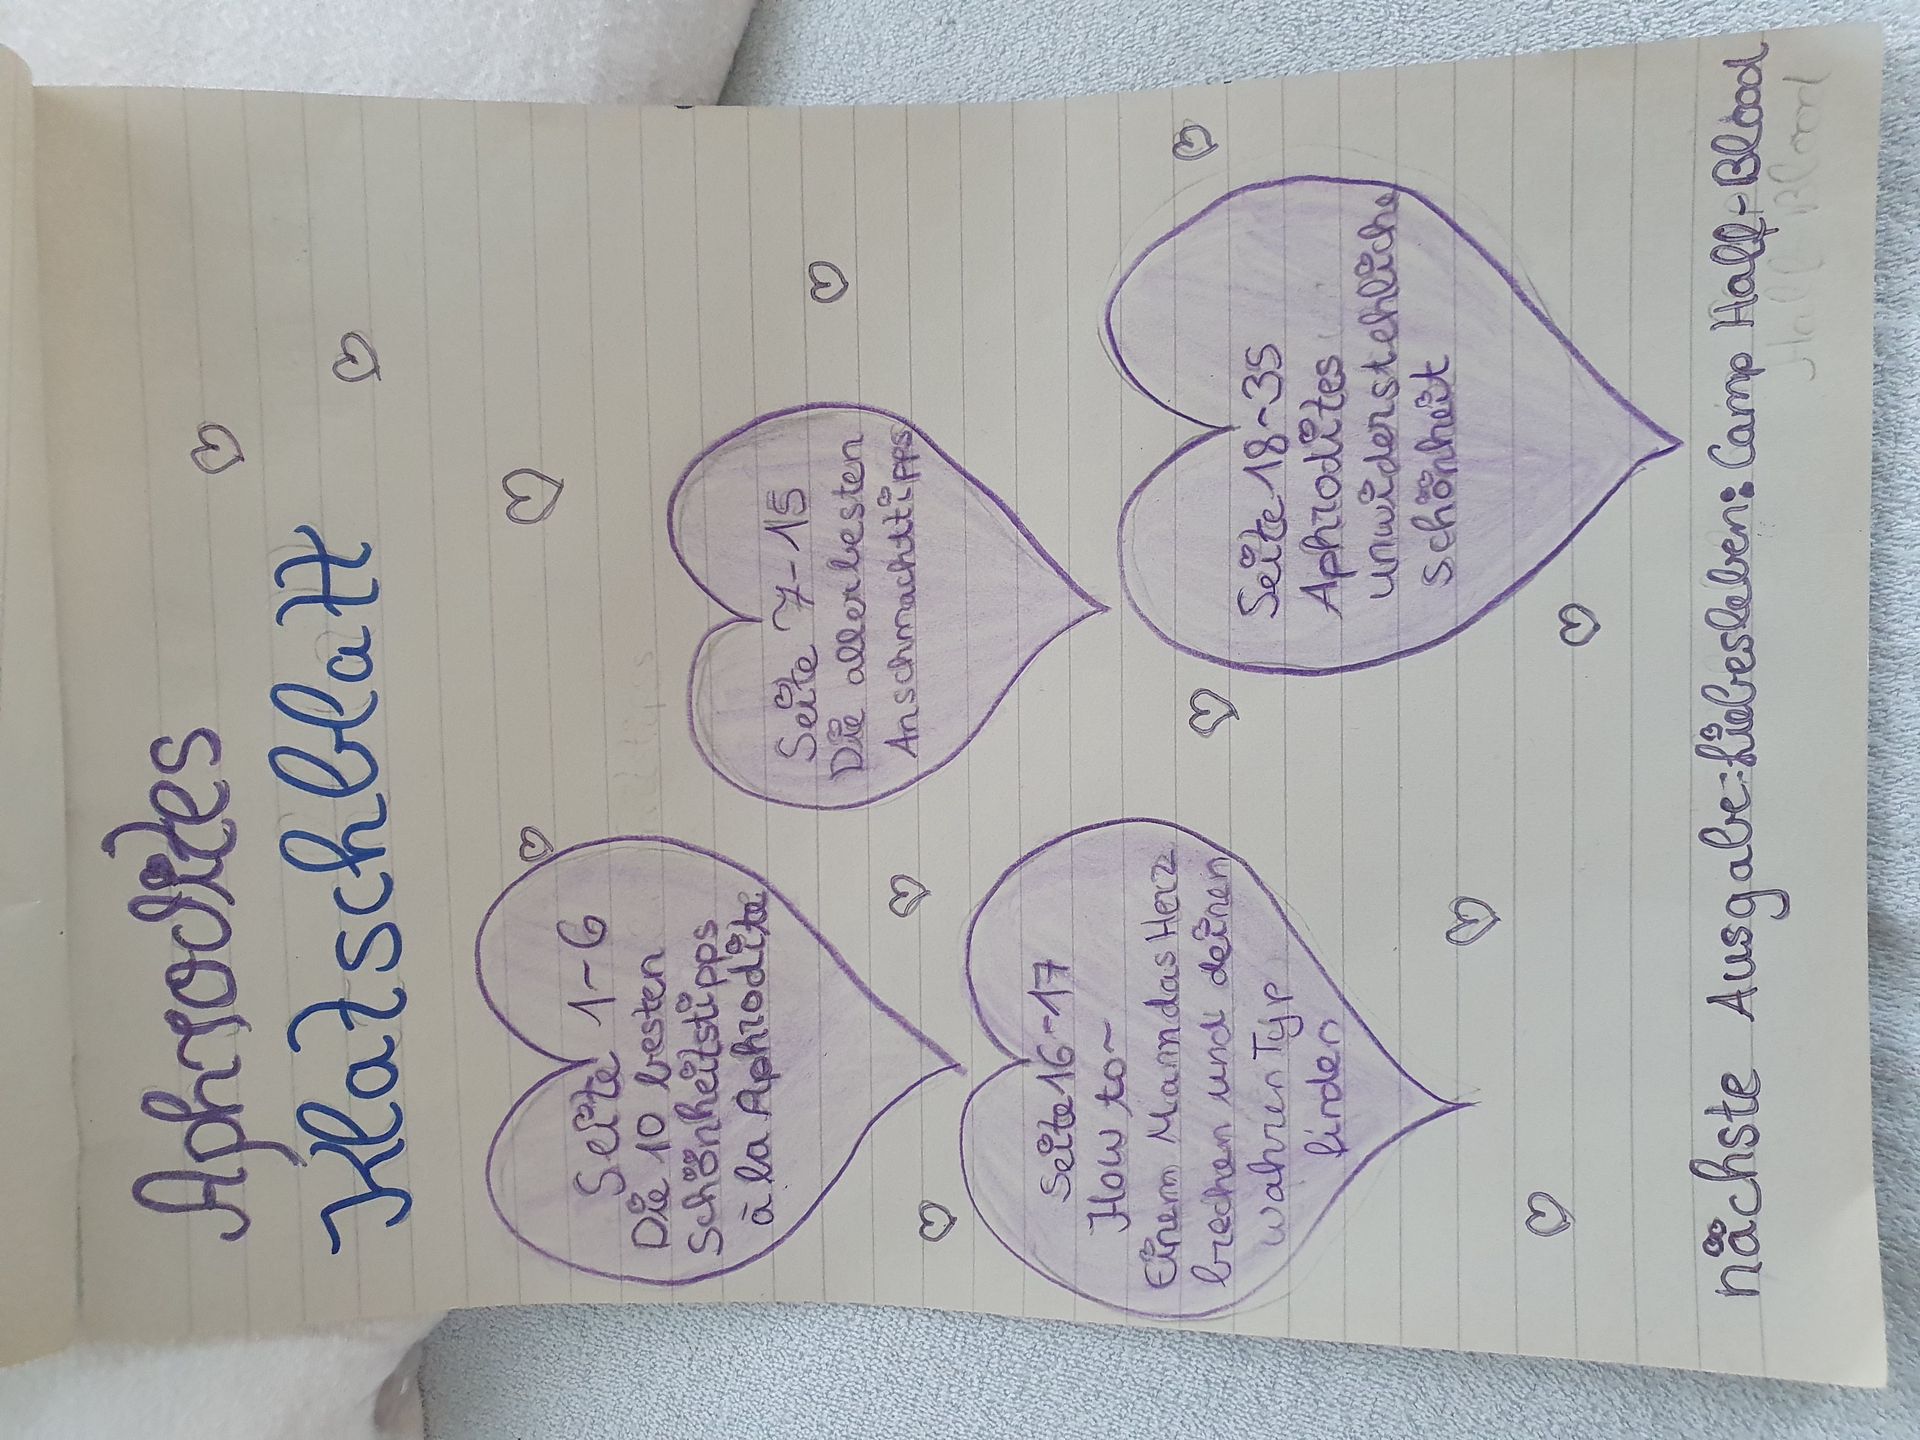 Aphrodites
Klatschblatt
Seite 1-6
Die 10 besten
Schönheitstipps
à la Aphrodite
Seite 7-15
Die allerbesten
Anschmachttipps
Seite 16-17
How to~
Einem Mann das Herz
brechen und deinen
wahren Typ
finden
Seite 18-35
Aphrodites
unwiderstehliche
Schönheit
nächste Ausgabe: Liebesleben: Camp Half-Blood
Half-Blood